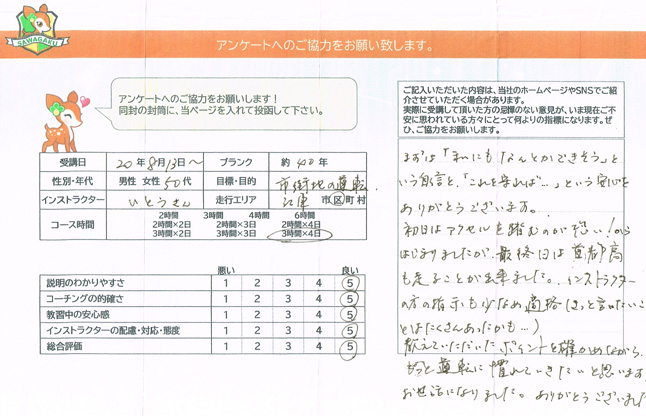 SAWAGAKU
アンケートへのご協力をお願い致します。
アンケートへのご協力をお願いします！
同封の封筒に、当ページを入れて投函して下さい。
受講日 20年8月13日〜 ブランク 約40年
性別・年代 男性 女性 50代 目標・目的 市街地の運転
インストラクター いとうさん 走行エリア 江東 市区町村
コース時間 2時間 3時間 4時間 6時間
2時間×2日 2時間×3日 2時間×4日
3時間×2日 3時間×3日 3時間×4日
悪い 良い
説明のわかりやすさ 1 2 3 4 5
コーチングの的確さ 1 2 3 4 5
教習中の安心感 1 2 3 4 5
インストラクターの配慮・対応・態度 1 2 3 4 5
総合評価 1 2 3 4 5
ご記入いただいた内容は、当社のホームページやSNSでご紹介
させていただく場合があります。
実際に受講して頂いた方の忌憚のない意見が、いま現在ご不
安に思われている方々にとって何よりの指標になります。ぜ
ひ、ご協力をお願いします。
まずは「私にもなんとかできそう」と
いう自信と、「これを乗れば…」という安心を
ありがとうございます。
初日はアクセルを踏むのが恐い！から
はじまりましたが、最終日は首都高
も走ることが出来ました。インストラクター
の方の指示も少なめ適格（もっと言いたいこ
とはたくさんあったかも…）
教えていただいたポイントを確かめながら、
もっと運転に慣れていきたいと思います。
お世話になりました。ありがとうございました